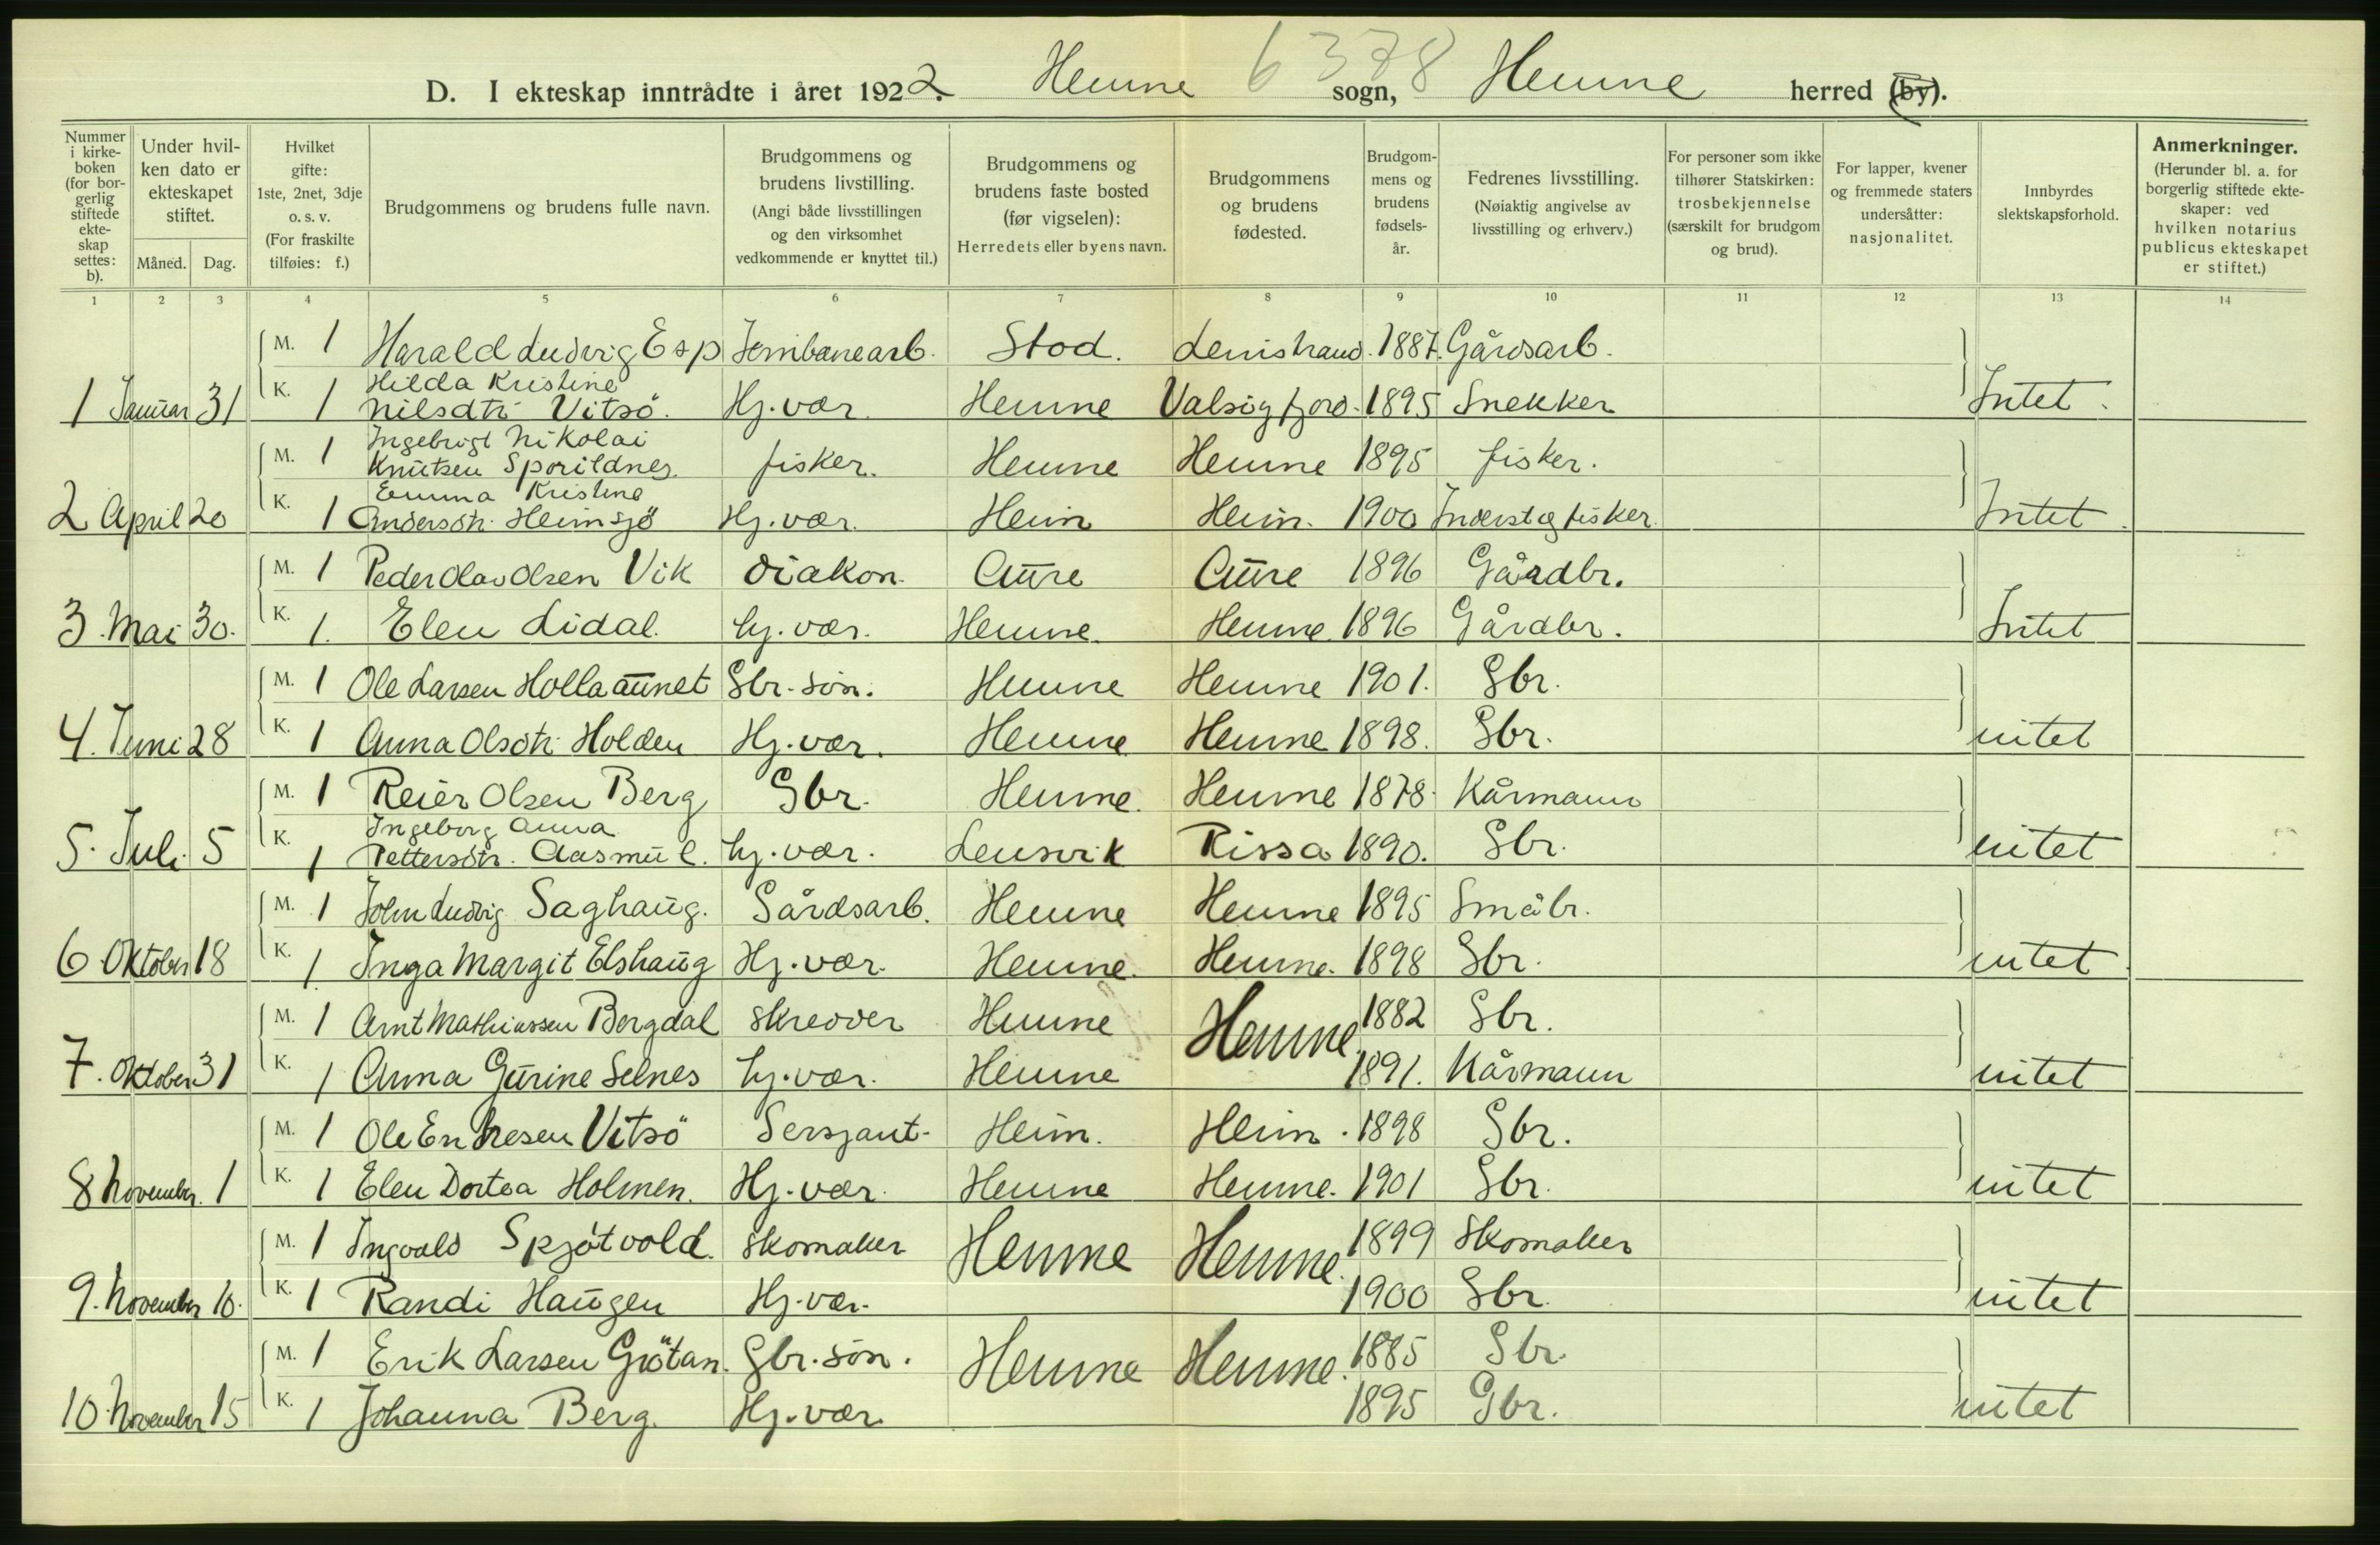 6378
D. I ekteskap inntrådte i året 1922. Hemne sogn, Hemne herred (by).
Nummer i kirke-boken (for bor-gerlig stiftede ekte-skap settes: b).
Under hvil-ken dato er ekteskapet stiftet.
Måned. Dag.
Hvilket gifte: 1ste, 2net, 3dje o. s. v. (For fraskilte tilføies: f.)
Brudgommens og brudens fulle navn.
Brudgommens og brudens livstilling. (Angi både livsstillingen og den virksomhet vedkommende er knyttet til.)
Brudgommens og brudens faste bosted (før vigselen): Herredets eller byens navn.
Brudgommens og brudens fødested.
Brudgom-mens og brudens fødsels-år.
Fedrenes livsstilling. (Nøiaktig angivelse av livsstilling og erhverv.)
For personer som ikke tilhører Statskirken: trosbekjennelse (særskilt for brudgom og brud).
For lapper, kvener og fremmede staters undersåtter: nasjonalitet.
Innbyrdes slektskapsforhold.
Anmerkninger. (Herunder bl. a. for borgerlig stiftede ekte-skaper: ved hvilken notarius publicus ekteskapet er stiftet.)
1 2 3 4 5 6 7 8 9 10 11 12 13 14
M. 1 Harald Ludvig Esp Jernbanearb. Stod. 1887. Gårdsarb.
Hilda Kristine
1 Januar 31 K. 1 Nilsdtr Vitsö. Hj.vær. Hemne Valsøgfjord. 1895 Snekker Intet.
Ingebrigt Nikolai
M. 1 Knutsen Sporildnes fisker. Hemne Hemne 1895 fisker.
Emma Kristine
2 April 20 K. 1 Andersdtr. Heimsjö Hj.vær. Heim Heim. 1900 Inderst og fisker. Intet.
M. 1 Peder Olav Olsen Vik diakon. Aure Aure 1896 Gårdbr.
3. Mai 30. K. 1. Elen Lidal. hj.vær. Hemne. Hemne. 1896 Gårdbr. Intet
M. 1 Ole Larsen Hollaaunet Gbr.sön. Hemne Hemne 1901. Gbr.
4. Juni 28 K. 1 Anna Olsdtr. Holden Hj.vær. Hemne Hemne 1898. Gbr. intet
M. 1 Reier Olsen Berg Gbr. Hemne. Hemne 1878. Kårmann
Ingeborg Anna
5. Juli 5 K. 1 Pettersdtr. Aasmul. hj.vær. Lensvik Rissa 1890. Gbr. intet
M. 1 John Ludvig Saghaug. Gårdsarb. Hemne Hemne 1895 Småbr.
6. Oktober 18 K. 1 Inga Margit Elshaug Hj.vær. Hemne. Hemne. 1898 Gbr. intet.
M. 1 Arnt Mathiassen Bergdal skredder Hemne Hemne. 1882 Gbr.
7. Oktober 31 K. 1 Anna Gurine Selnes hj.vær. Hemne 1891. Kårmann intet
M. 1 Ole Endresen Vitsö Sersjant. Heim. Heim. 1898 Gbr.
8 November. 1 K. 1 Elen Dortea Holmen. Hj.vær. Hemne Hemne. 1901 Gbr. intet
M. 1 Ingvald Spjötvold. skomaker Hemne Hemne. 1899 Skomaker
9. November 10. K. 1 Randi Haugen Hj.vær. 1900 Gbr. intet
M. 1 Erik Larsen Grötan. Gbr.sön. Hemne Hemne. 1885 Gbr.
10 November 15 K. 1 Johanna Berg. Hj.vær 1895 Gbr. intet